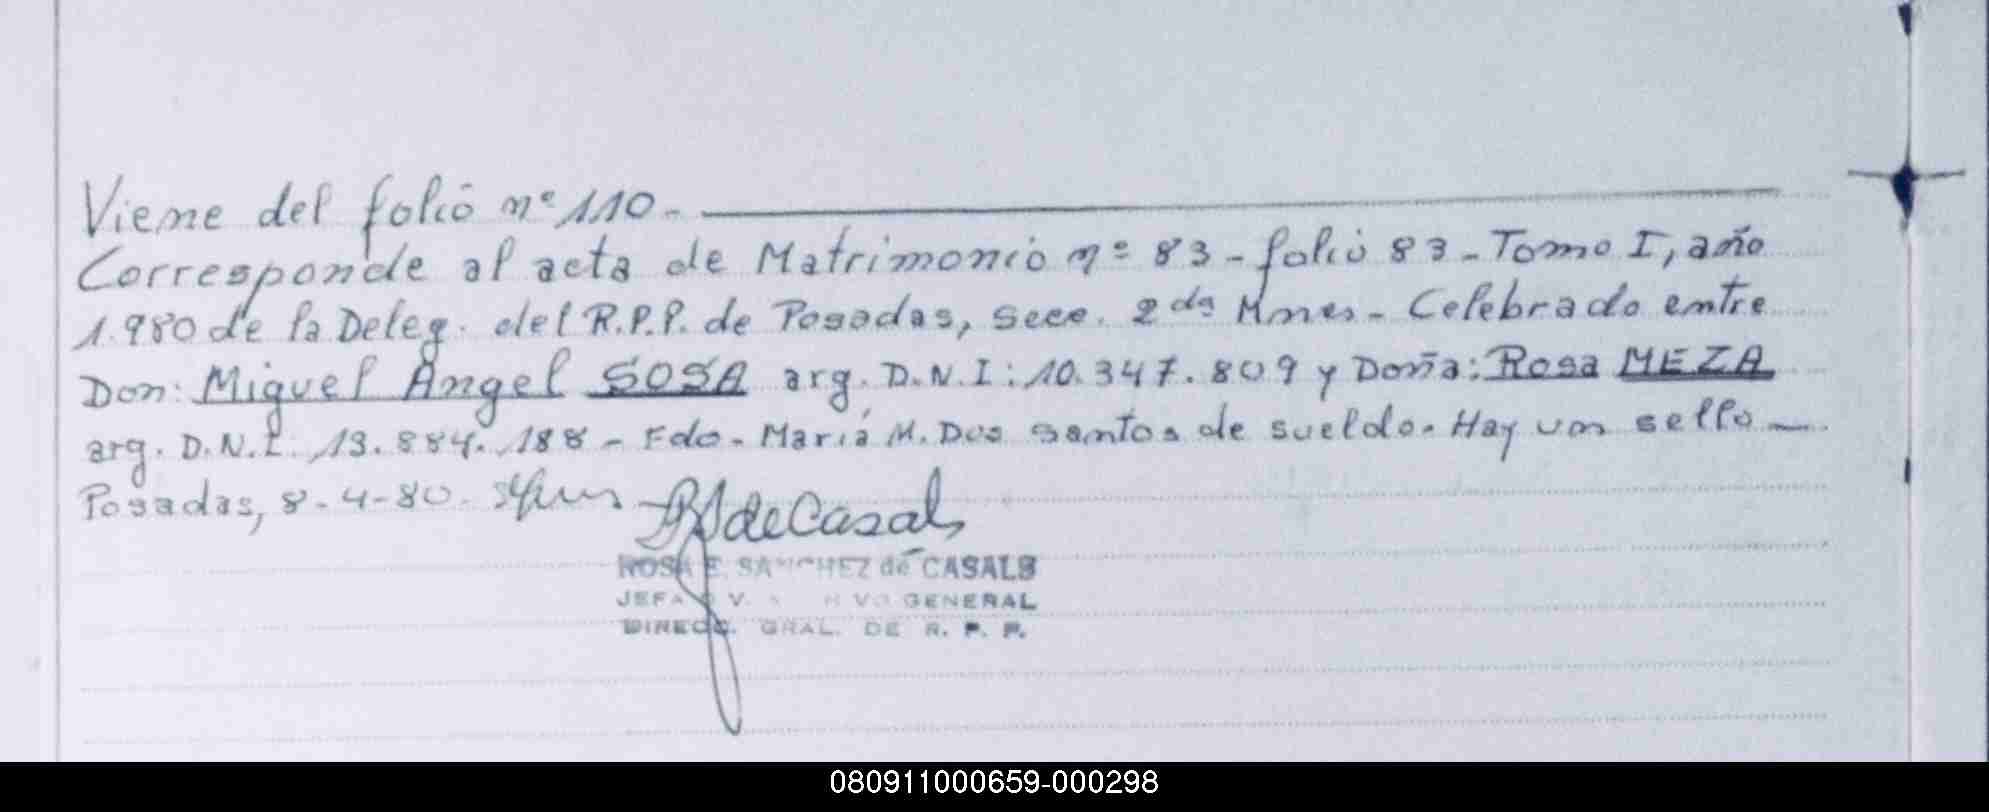 Viene del folio nº 110.-
Corresponde al acta de Matrimonio nº 83 - folio 83 - Tomo I, año
1.980 de la Deleg. del R.P.P. de Posadas, Secc. 2da Mnes - Celebrado entre
Don: Miguel Angel SOSA arg. D.N.I: 10.347.809 y Doña: Rosa MEZA
arg. D.N.I. 13.884.188 - Fdo. María M. Dos Santos de Sueldo. Hay un sello
Posadas, 8-4-80.
de Casals
ROSA E. SANCHEZ de CASALS
JEFA GENERAL
DIRECC. GRAL. DE R. P. P.
080911000659-000298